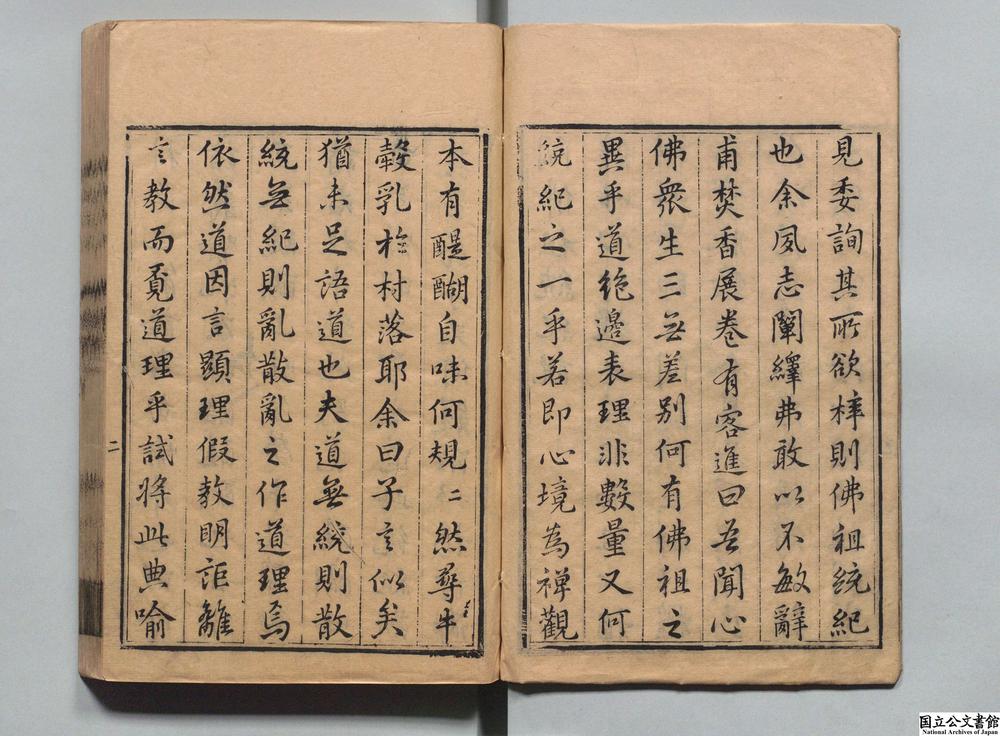 見委詢其所欲梓則佛祖統紀
也余夙志闡繹弗敢以不敏辭
甫焚香展卷有客進曰吾聞心
佛衆生三无差別何有佛祖之
異乎道絶邊表理非數量又何
統紀之一乎若即心境為禪觀
本有醍醐自味何規二然尋牛
穀乳於村落耶余曰子言似矣
猶未足語道也夫道無統則散
統无紀則亂散亂之作道理焉
依然道因言顯理假教明詎離
言教而覓道理乎試將此典喻
二
国立公文書館
National Archives of Japan